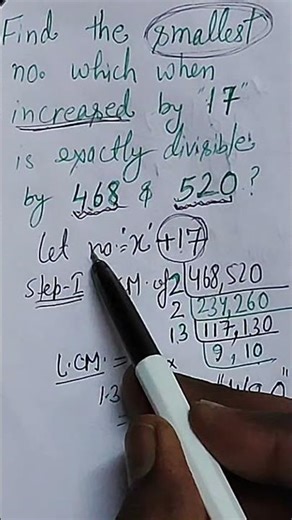 Find the smallest
no. which when
increased by "17"
is exactly divisible
by 468 & 520?
Let no = 'x' +17
Step-I M. of 2 468,520
2 234,260
13 117,130
9, 10
L.CM. = x
13
=